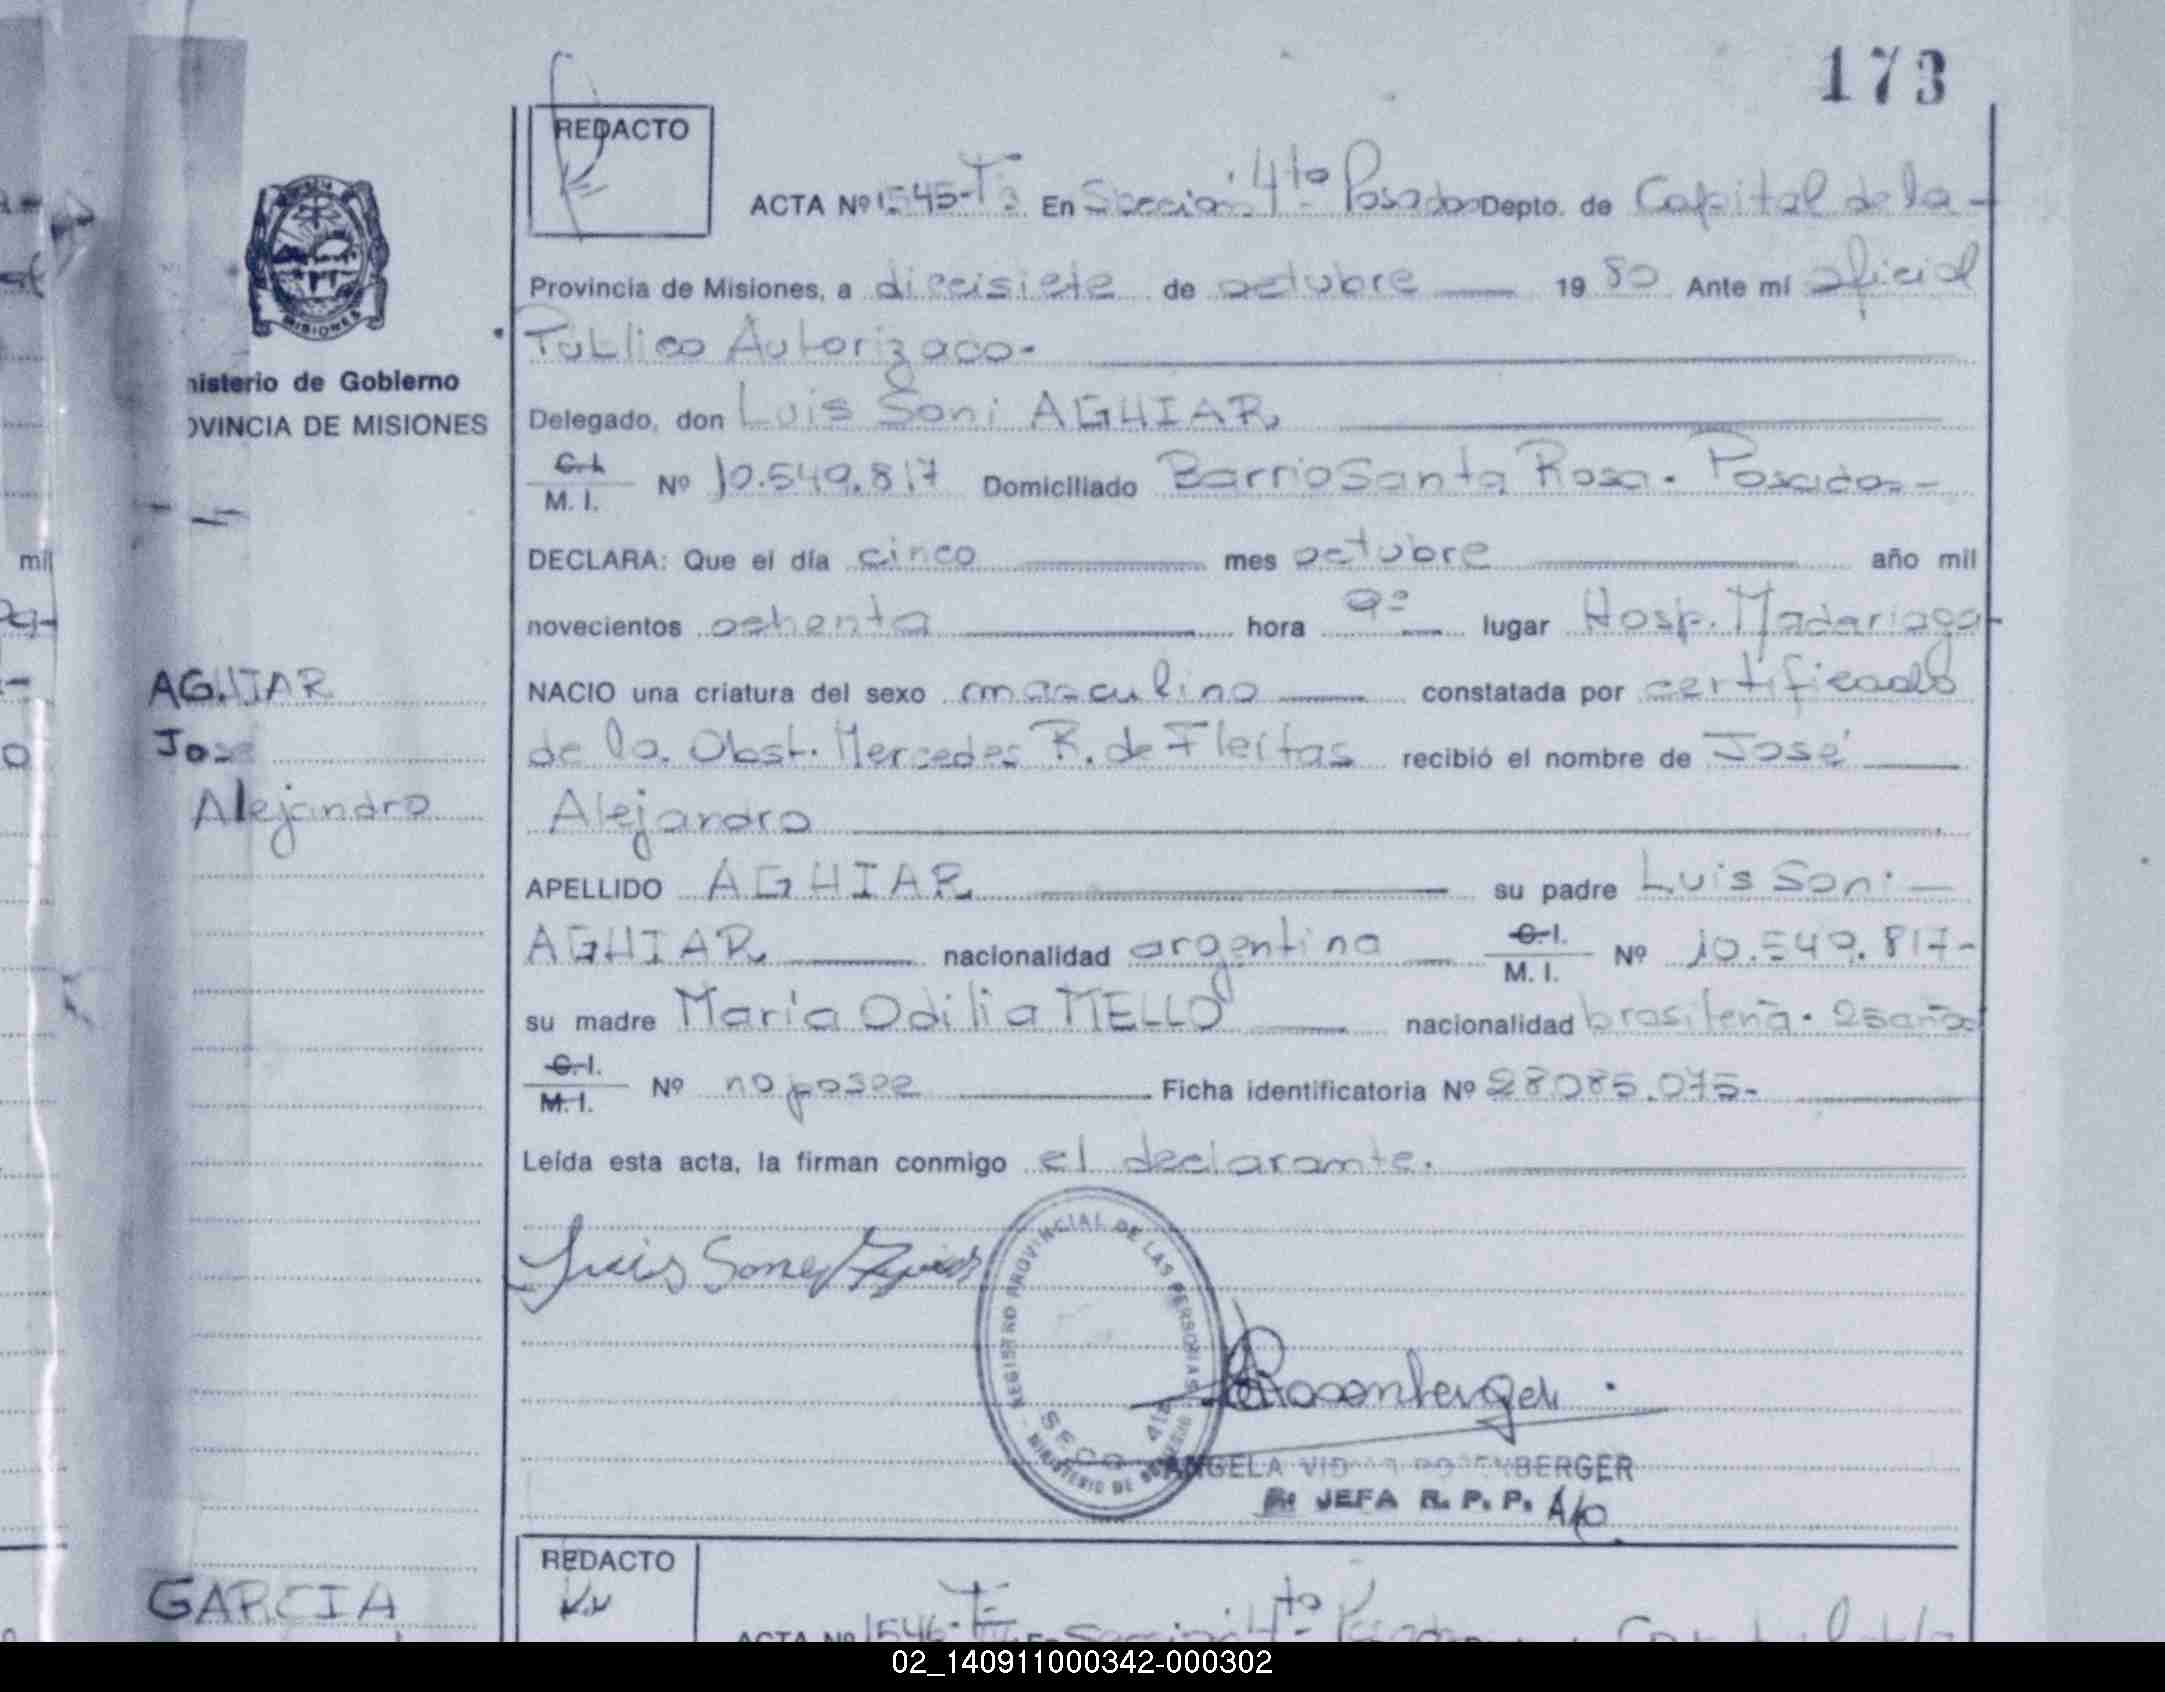 173
REDACTO
ACTA Nº 1545-Tº3 En Sección 4ta Posadas Depto. de Capital de la-
Provincia de Misiones, a diecisiete de octubre 1980 Ante mí oficial
Público Autorizado-
nisterio de Gobierno
OVINCIA DE MISIONES
Delegado, don Luis Soni AGHIAR
C.I. M. I. Nº 10.549.817 Domiciliado Barrio Santa Rosa. Posadas-
DECLARA: Que el día cinco mes octubre año mil
novecientos ochenta hora 9º lugar Hosp. Madariaga-
AGHIAR
José
Alejandro
NACIO una criatura del sexo masculino constatada por certificado
de la Obst. Mercedes R. de Fleitas recibió el nombre de José
Alejandro
APELLIDO AGHIAR su padre Luis Soni
AGHIAR nacionalidad argentina C.I. M. I. Nº 10.549.817-
su madre María Odilia MELLO nacionalidad brasileña. 25 años
C.I. M.I. Nº no posee Ficha identificatoria Nº 28085.075-
Leída esta acta, la firman conmigo el declarante.
REGISTRO PROVINCIAL DE LAS PERSONAS
SECC. 4ta
MINISTERIO DE GOBIERNO
Rosenberger
ANGELA ROSENBERGER
JEFA R. P. P. A/c
GARCIA
REDACTO
ACTA Nº 1546-
mil
02_140911000342-000302